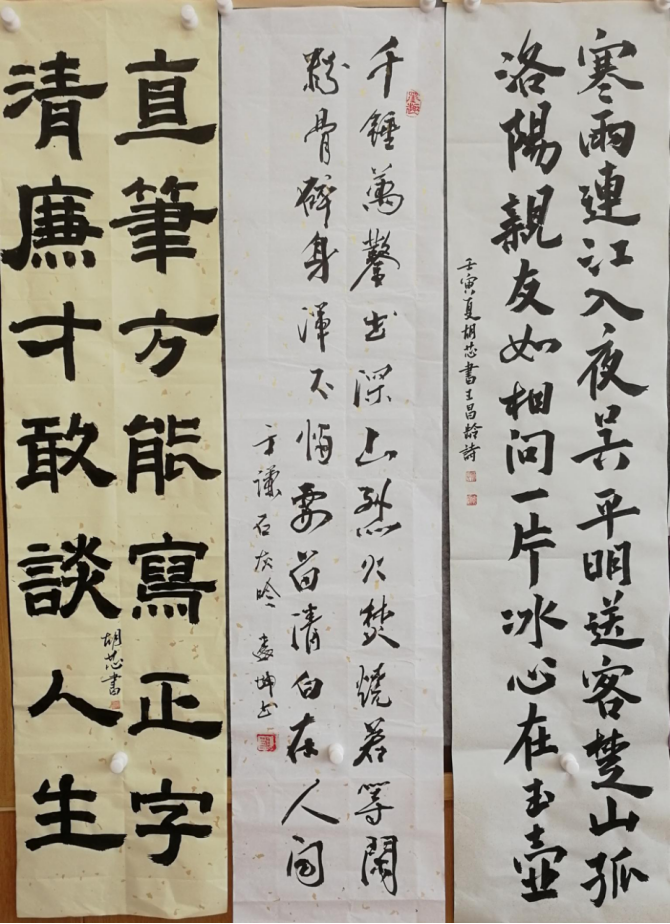 寒雨連江入夜吳平明送客楚山孤
洛陽親友如相問一片冰心在玉壺
壬寅夏胡芯書王昌齡詩
千錘萬鑿出深山烈火焚燒若等閑
粉骨碎身渾不悔要留清白在人间
于謙石灰吟 坤书
直筆方能寫正字
清廉才敢談人生
胡芯書